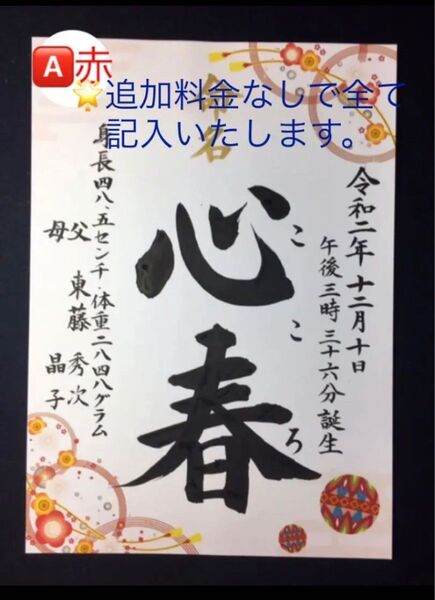 A赤
⭐追加料金なしで全て
記入いたします。
命名
令和二年 十二月十日
午後三時 三十六分誕生
こころ
心春
身長四八.五センチ.体重二八四八グラム
父 東藤 秀次
母 晶子